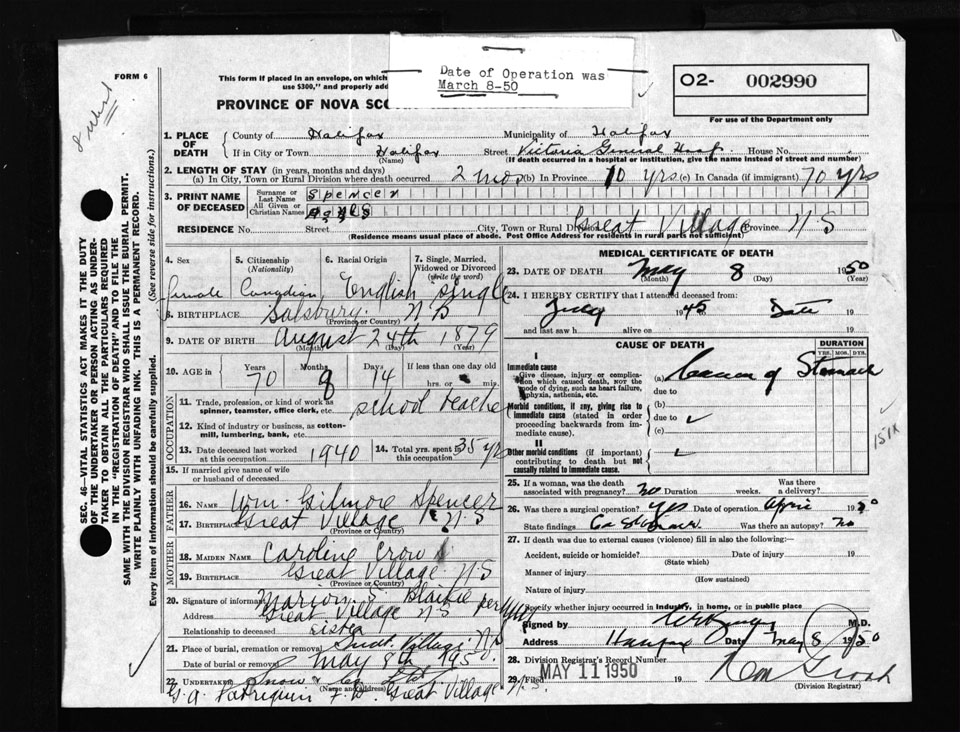 FORM 6
This form if placed in an envelope, on which
use $300," and properly add
Date of Operation was
March 8-50
O2- 002990
For use of the Department only
PROVINCE OF NOVA SCO
1. PLACE OF DEATH
County of Halifax Municipality of Halifax
If in City or Town Halifax Street Victoria General Hosp. House No.
(Name) (If death occurred in a hospital or institution, give the name instead of street and number)
2. LENGTH OF STAY (in years, months and days)
(a) In City, Town or Rural Division where death occurred 2 mos (b) In Province 70 yrs (c) In Canada (if immigrant) 70 yrs
3. PRINT NAME OF DECEASED
Surname or Last Name Spencer
All Given or Christian Names Agnes
RESIDENCE No. Street City, Town or Rural Division Great Village Province N-S
(Residence means usual place of abode. Post Office Address for residents in rural parts not sufficient)
4. Sex female
5. Citizenship (Nationality) Canadian
6. Racial Origin English
7. Single, Married, Widowed or Divorced (write the word) single
8. BIRTHPLACE Salsbury N B
(Province or Country)
9. DATE OF BIRTH August 24th 1879
(Month) (Day) (Year)
10. AGE in Years 70 Months 8 Days 14 If less than one day old
hrs. or min.
OCCUPATION
11. Trade, profession, or kind of work as spinner, teamster, office clerk, etc. school teacher
12. Kind of industry or business, as cotton-mill, lumbering, bank, etc.
13. Date deceased last worked at this occupation 1940
14. Total yrs. spent in this occupation 35 yr
15. If married give name of wife or husband of deceased
FATHER
16. NAME Wm. Gilmore Spencer
17. BIRTHPLACE Great Village N-S
(Province or Country)
MOTHER
18. MAIDEN NAME Caroline Crow
19. BIRTHPLACE Great Village N-S
(Province or Country)
20. Signature of informant Marion S Blaikie per
Address Great Village N S
Relationship to deceased sister
21. Place of burial, cremation or removal Great Village N S
Date of burial or removal May 8th 1950
22. UNDERTAKER Snow & Co Ltd
(Name and address) Great Village N. S.
MEDICAL CERTIFICATE OF DEATH
23. DATE OF DEATH May 8 1950
(Month) (Day)
24. I HEREBY CERTIFY that I attended deceased from:
July 1945 Date 19
and last saw h alive on 19
CAUSE OF DEATH
DURATION
YRS. MOS. DYS.
I
Immediate cause
Give disease, injury or complication which caused death, not the mode of dying, such as heart failure, asphyxia, asthenia, etc.
(a) Cancer of Stomach
due to
Morbid conditions, if any, giving rise to immediate cause (stated in order proceeding backwards from immediate cause).
(b)
due to
(c)
II
Other morbid conditions (if important) contributing to death but not causally related to immediate cause.
151X
25. If a woman, was the death associated with pregnancy? no Duration weeks. Was there a delivery?
26. Was there a surgical operation? yes Date of operation April 1950
State findings Ca Stomach Was there an autopsy? no
27. If death was due to external causes (violence) fill in also the following:—
Accident, suicide or homicide? Date of injury 19
(State which)
Manner of injury
(How sustained)
Nature of injury
Specify whether injury occurred in industry, in home, or in public place
Signed by M.D.
Address Halifax Date May 8 1950
28. Division Registrar's Record Number
29. Filed MAY 11 1950 19
(Division Registrar)
SEC. 46—VITAL STATISTICS ACT MAKES IT THE DUTY
OF THE UNDERTAKER OR PERSON ACTING AS UNDER-
TAKER TO OBTAIN ALL THE PARTICULARS REQUIRED
IN THE "REGISTRATION OF DEATH" AND TO FILE THE
SAME WITH THE DIVISION REGISTRAR WHO SHALL ISSUE THE BURIAL PERMIT.
WRITE PLAINLY WITH UNFADING INK. THIS IS A PERMANENT RECORD.
Every item of information should be carefully supplied. (See reverse side for instructions.)